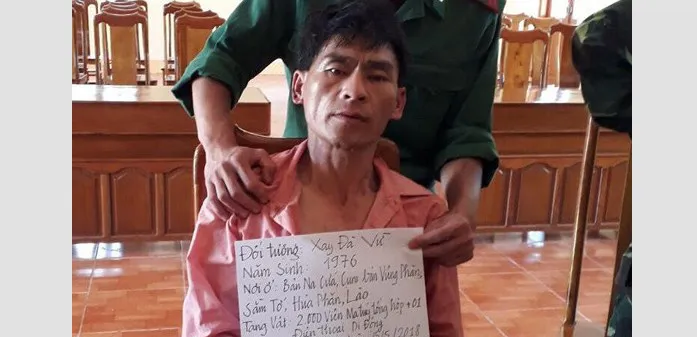 Đối tượng: Xay Đà Vừ
Năm Sinh: 1976
Nơi ở: Bản Na Cưa, Cụm bản Vùng Phăn,
Sầm Tớ, Hủa Phăn, Lào
Tang Vật: 2.000 Viên Ma túy tổng hợp + 01
Điện thoại Di Động
/5/2018